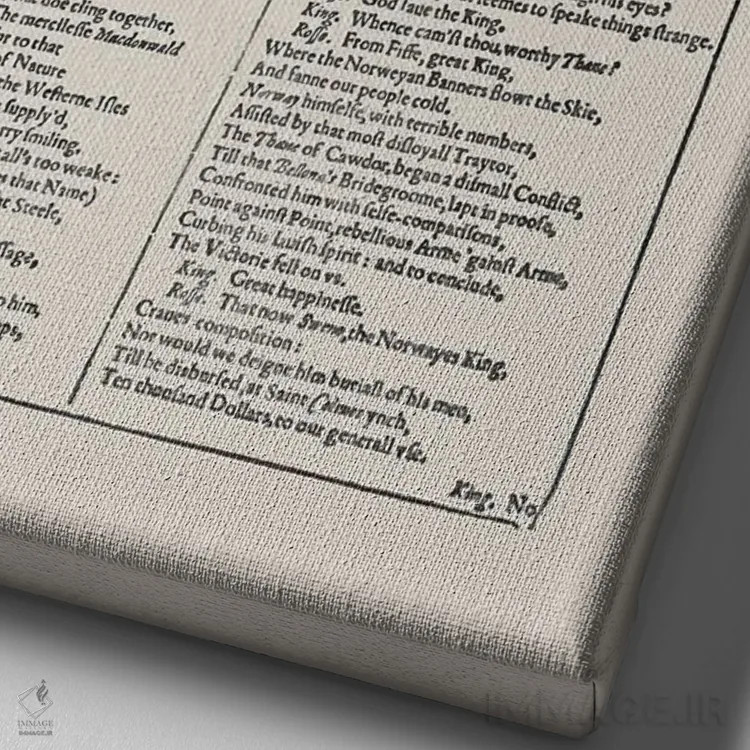 doe cling together,
The mercilesse Macdonwald
to that
of Nature
the Westerne Isles
supply'd,
smiling,
all's too weake:
that Name)
Steele,
him,
his eyes?
seemes to speake things strange.
God saue the King.
King. Whence cam'st thou, worthy Thane?
Rosse. From Fiffe, great King,
Where the Norweyan Banners flowt the Skie,
And fanne our people cold.
Norway himselfe, with terrible numbers,
Assisted by that most disloyall Traytor,
The Thane of Cawdor, began a dismall Conflict,
Till that Bellona's Bridegroome, lapt in proofe,
Confronted him with selfe-comparisons,
Point against Point, rebellious Arme 'gainst Arme,
Curbing his lauish spirit: and to conclude,
The Victorie fell on vs.
King. Great happinesse.
Rosse. That now Sweno, the Norwayes King,
Craues composition:
Nor would we deigne him buriall of his men,
Till he disbursed, at Saint Colmes ynch,
Ten thousand Dollars, to our generall vse.
King. No
IMMAGE
IMMAGE.IR
IMMAGE.IR